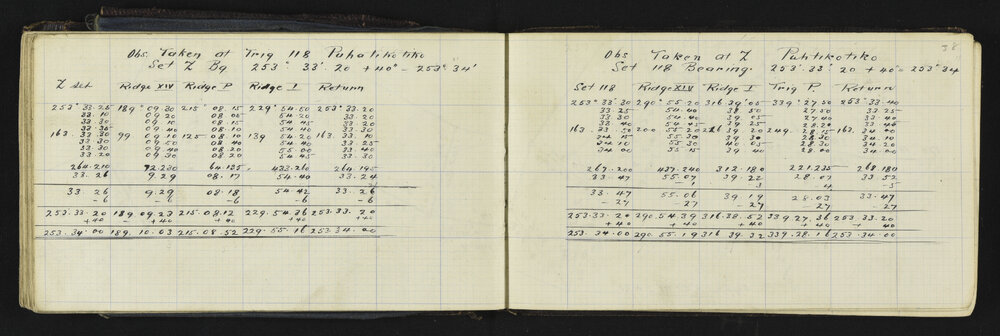 Obs. Taken at Trig 118 Puhatikotiko
Set Z Bg 253° 33'. 20 + 40" = 253° 34'
Z Set Ridge XIV Ridge P Ridge I Return
253° 33. 25 189° 09. 30 215° 08. 15 229° 54. 50 253° 33. 20
33. 10 09. 20 08 05 54. 20 33. 20
33. 30 09. 10 08. 15 54. 45 33. 20
33. 35 09. 40 08. 10 54. 40 33. 30
163. 33. 30 99 09. 10 125 08. 10 139 54. 20 163. 33. 10
33. 30 09. 50 08. 40 54. 40 33. 25
33. 30 09. 40 08. 20 55. 00 33. 40
33. 20 09. 30 08. 20 54. 45 33. 30
264. 210 72. 230 64. 135 433. 260 264. 195
33. 26 9. 29 08. 17 54. 40 33. 24
33. 26 9. 29 08. 18 54. 42 33. 26
-6 -6 -6 -6 -6
253. 33. 20 189. 09. 23 215. 08. 12 229. 54. 36 253. 33. 20
+40 +40 +40 +40 +40
253. 34. 00 189. 10. 03 215. 08. 52 229. 55. 16 253. 34. 00
38
Obs Taken at Z Puhtikotiko
Set 118 Bearing. 253°. 33'. 20 + 40" = 253°. 34
Set 118 Ridge XIV Ridge I Trig P. Return
253° 33' 30 290° 55. 20 316° 39. 05 339° 27. 50 253° 33. 40
33 25 54. 40 38. 50 27. 50 33. 50
33 30 54. 40 39. 05 27. 40 33. 40
33 40 54. 45 39. 25 28. 20 33. 40
163. 33. 50 200 55. 20 39. 20 249. 28. 15 163. 34. 00
34. 15 55. 30 39. 30 28. 30 34. 10
34. 10 55. 30 40. 05 28. 30 34. 20
34. 00 55. 15 39. 40 28. 00 34. 00
267. 200 437. 240 312. 180 221. 235 268. 180
33. 47 55. 07 39. 22 28. 07 33. 52
-1 -3 -4 -5
33. 47 55. 06 39. 19 28. 03 33. 47
-27 -27 -27 -27 -27
253. 33. 20 290. 54. 39 316. 38. 52 339. 27. 36 253. 33. 20
+40 +40 +40 +40 +40
253. 34. 00 290. 55. 19 316 39. 32 339. 28. 16 253. 34. 00